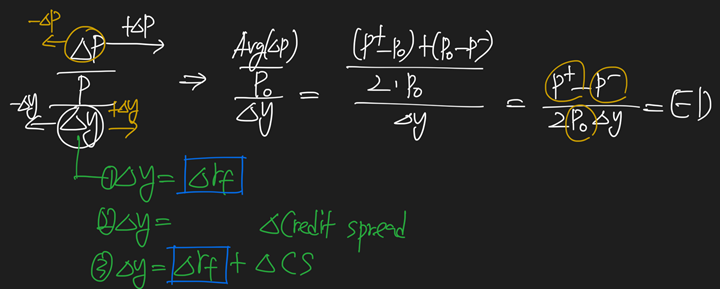 -ΔP +ΔP
ΔP / P / Δy ⇒ Avg(ΔP) / P₀ / Δy = (P⁺-P₀)+(P₀-P⁻) / 2·P₀ / Δy = P⁺-P⁻ / 2P₀Δy = ED
-Δy +Δy
① Δy = Δrf
② Δy = ΔCredit spread
③ Δy = Δrf + ΔCS